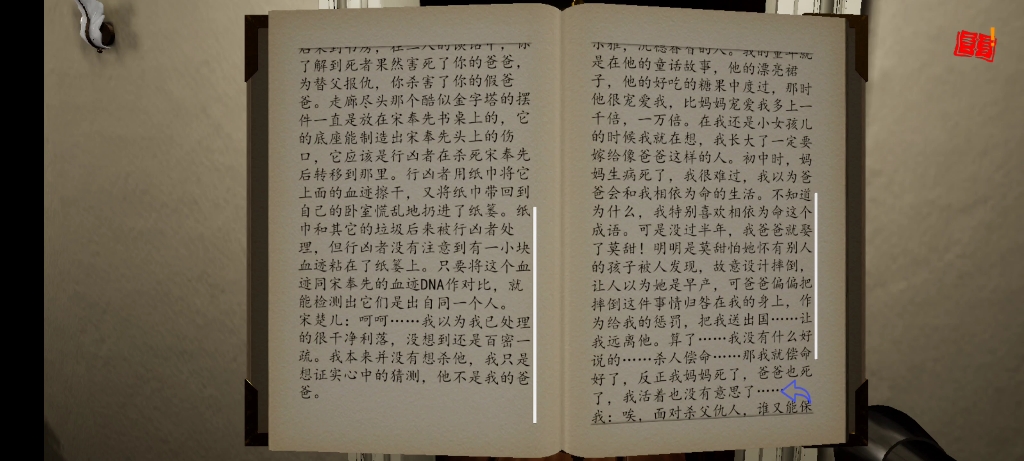 了解到死者果然害死了你的爸爸，
为替父报仇，你杀害了你的假爸
爸。走廊尽头那个酷似金字塔的摆
件一直是放在宋奉先书桌上的，它
的底座能制造出宋奉先头上的伤
口，它应该是行凶者在杀死宋奉先
后转移到那里。行凶者用纸巾将它
上面的血迹擦干，又将纸巾带回到
自己的卧室慌乱地扔进了纸篓。纸
巾和其它的垃圾后来被行凶者处
理，但行凶者没有注意到有一小块
血迹粘在了纸篓上。只要将这个血
迹同宋奉先的血迹DNA作对比，就
能检测出它们是出自同一个人。
宋楚儿：呵呵……我以为我已处理
的很干净利落，没想到还是百密一
疏。我本来并没有想杀他，我只是
想证实心中的猜测，他不是我的爸
爸。
是在他的童话故事，他的漂亮裙
子，他的好吃的糖果中度过，那时
他很宠爱我，比妈妈宠爱我多上一
千倍，一万倍。在我还是小女孩儿
的时候我就在想，我长大了一定要
嫁给像爸爸这样的人。初中时，妈
妈生病死了，我很难过，我以为爸
爸会和我相依为命的生活。不知道
为什么，我特别喜欢相依为命这个
成语。可是没过半年，我爸爸就娶
了莫甜！明明是莫甜怕她怀有别人
的孩子被人发现，故意设计摔倒，
让人以为她是早产，可爸爸偏偏把
摔倒这件事情归咎在我的身上，作
为给我的惩罚，把我送出国……让
我远离他。算了……我没有什么好
说的……杀人偿命……那我就偿命
好了，反正我妈妈死了，爸爸也死
了，我活着也没有意思了……
我：唉，面对杀父仇人，谁又能保